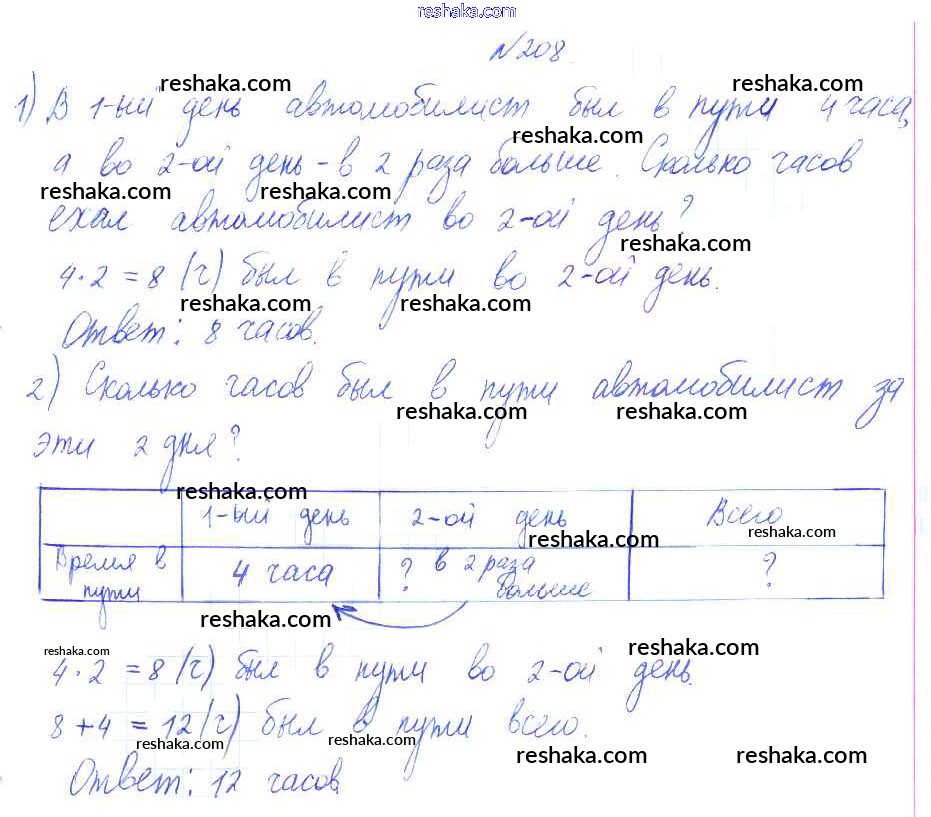 reshaka.com
N208
reshaka.com reshaka.com
1) В 1-ый день автомобилист был в пути 4 часа,
reshaka.com
а во 2-ой день - в 2 раза больше. Сколько часов
reshaka.com reshaka.com
ехал автомобилист во 2-ой день?
reshaka.com
4·2=8 (ч) был в пути во 2-ой день.
reshaka.com reshaka.com
Ответ: 8 часов.
2) Сколько часов был в пути автомобилист за
reshaka.com reshaka.com
эти 2 дня?
reshaka.com
1-ый день 2-ой день Всего
reshaka.com reshaka.com
Время в пути 4 часа ? в 2 раза больше ?
reshaka.com
reshaka.com reshaka.com
4·2=8 (ч) был в пути во 2-ой день.
8+4=12 (ч) был в пути всего.
reshaka.com reshaka.com reshaka.com reshaka.com
Ответ: 12 часов